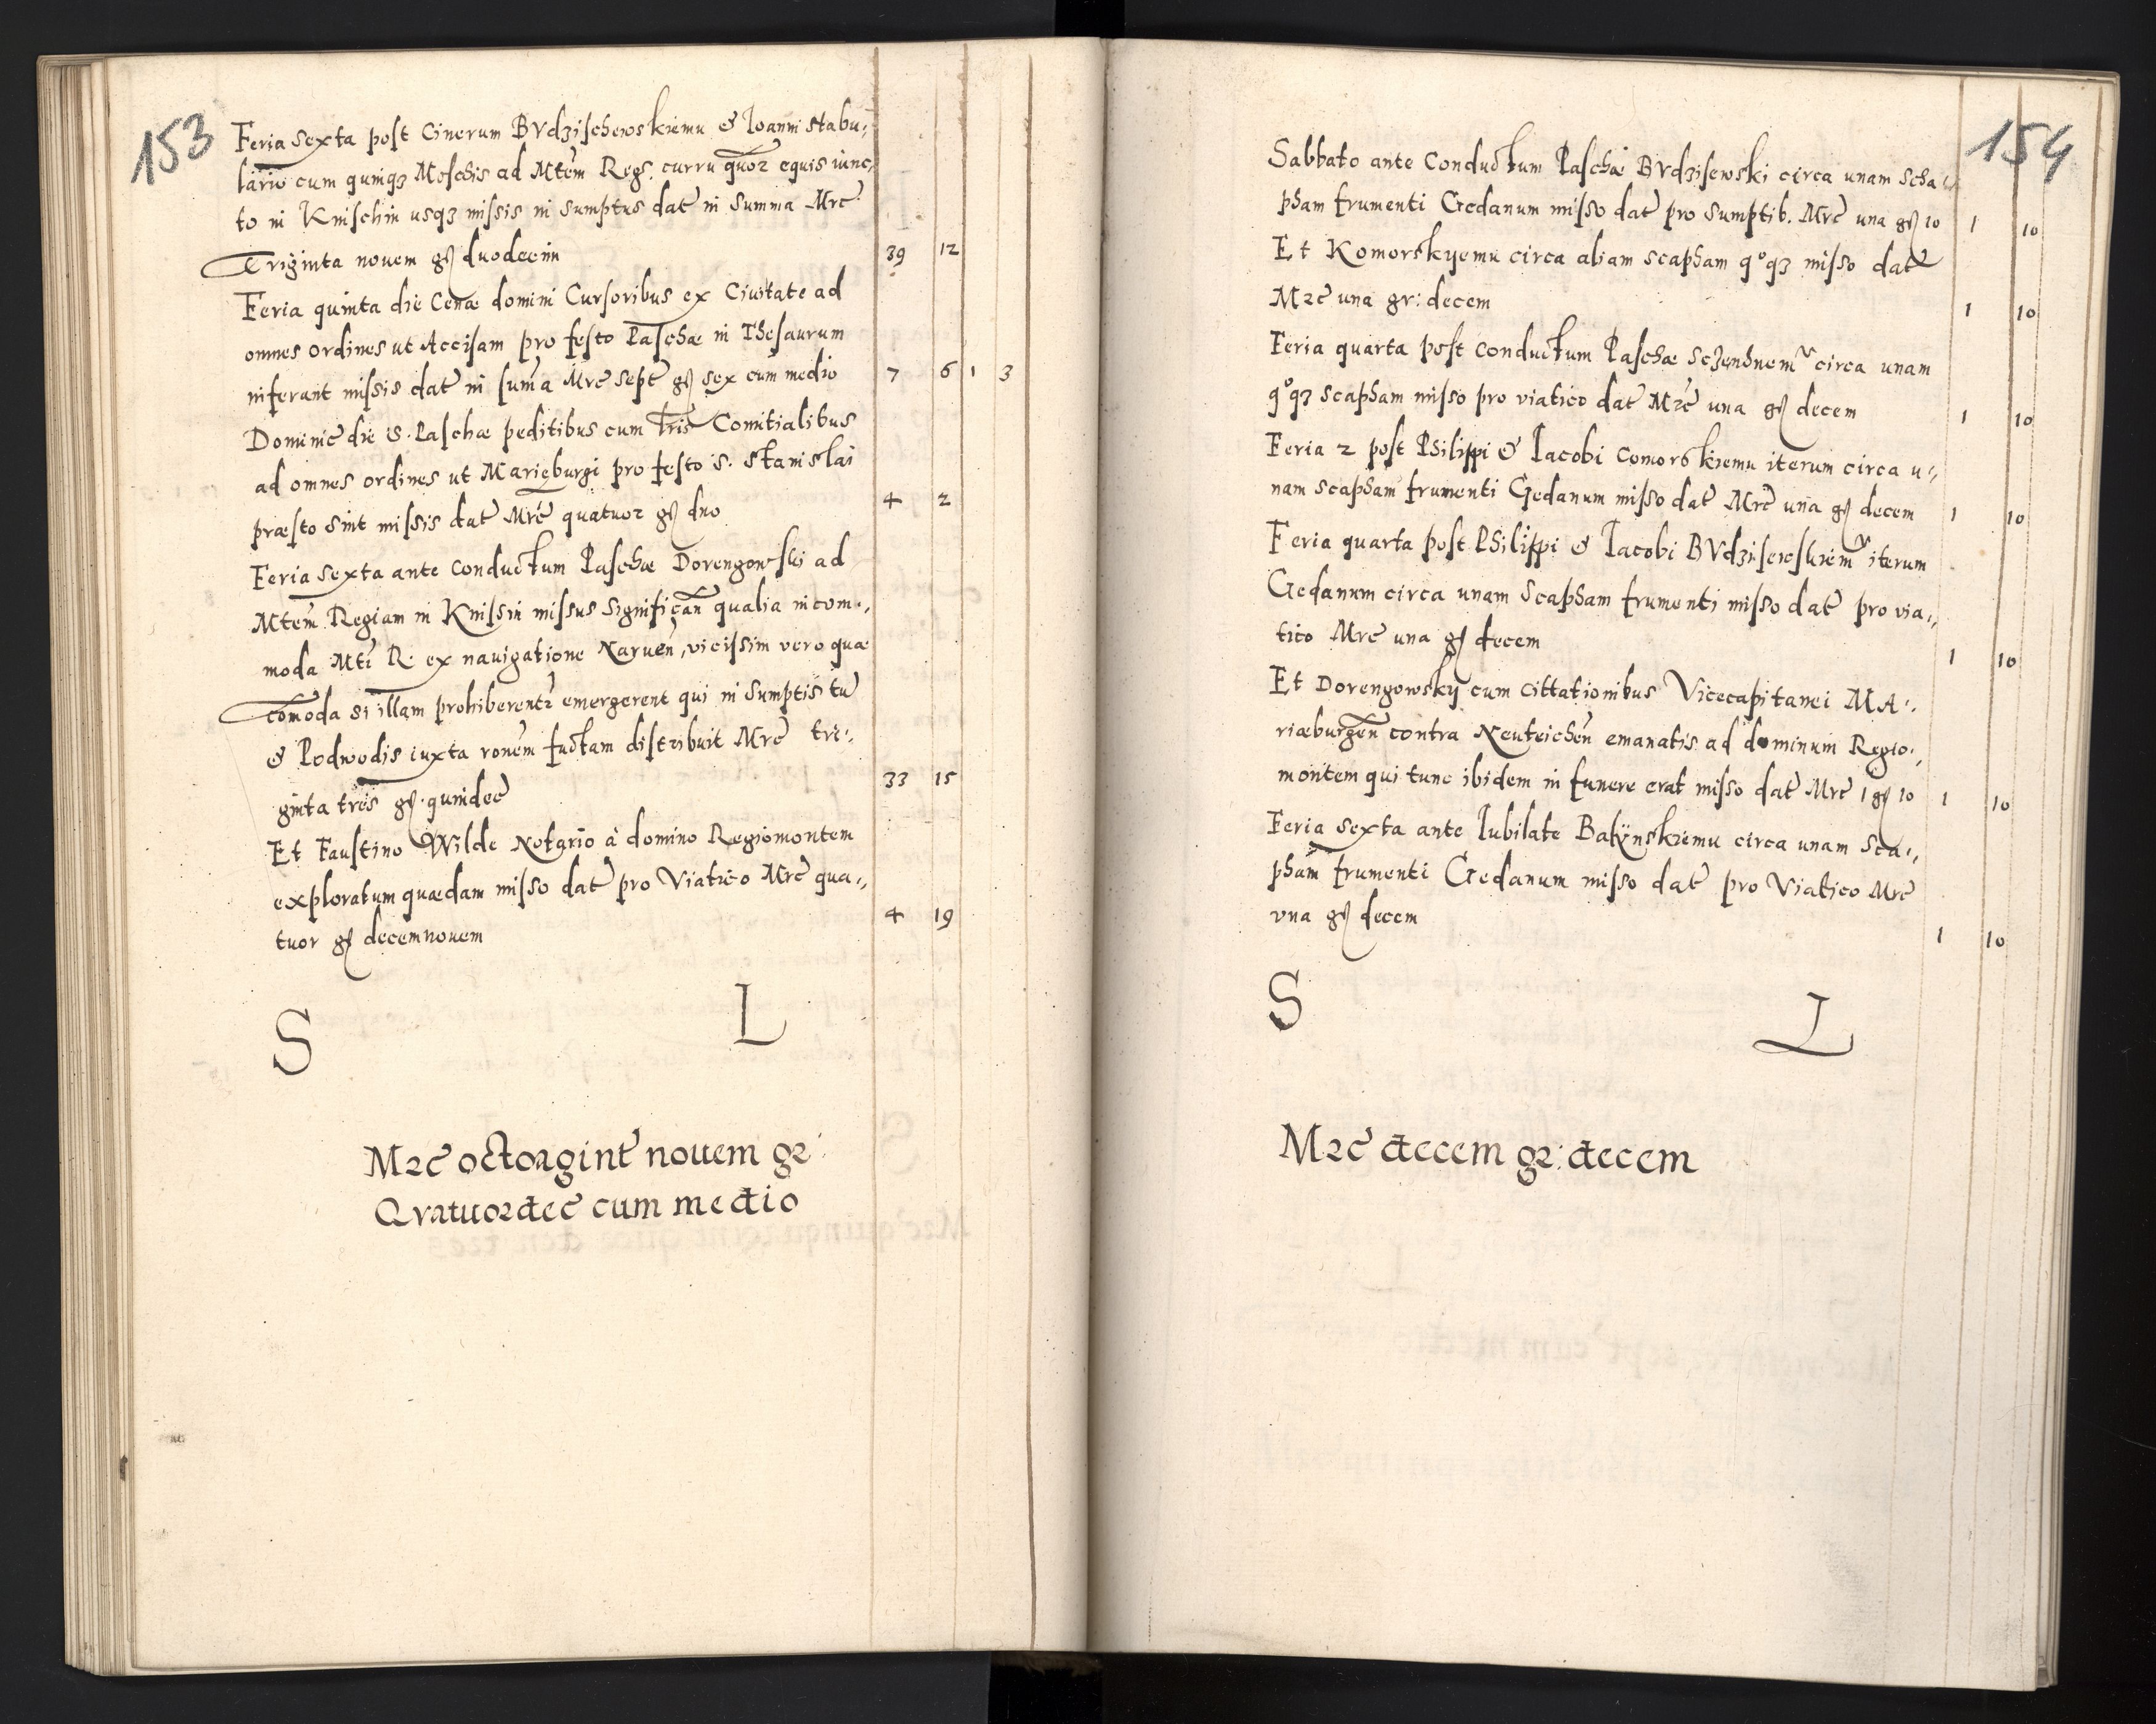 153
Feria sexta post Cinerum BVdzischewskiemu & Joanni stabu,,
lario cum quinqз Moschis ad Mtem Regs. curru quor equis iunc,,
to in Knischin usqз missis in sumptus dat in summa Mrc
Triginta novem gs duodecim 39 12
Feria quinta die Cenæ domini Cursoribus ex Civitate ad
omnes ordines ut Accisam pro festo Paschæ in Thesaurum
inferant missis dat in sum̄a Mrc sept gs sex cum medio 7 6 1 3
Dominic die S. Paschæ peditibus cum tris Comitialibus
ad omnes ordines ut Marieburgi pro festo S. Stanislai
præsto sint missis dat Mrc quatuor gs duo 4 2
Feria sexta ante conductum Paschæ Dorengowski ad
Mtem Regiam in Knissin missus significan qualia incom.,
moda Mti R. ex navigatione Narven, vicissim vero quæ
com̄oda si illam prohiberentr emergerent qui in sumptis tu
& Podwodis iuxta ronem factam distribuit Mrc tri.,
ginta tres gs. quindec 33 15
Et Faustino Wilde Notario à domino Regiomontem
exploratum quædam misso dat pro Viatico Mrc qua.,
tuor gs decemnovem 4 19
S L
Mrc octoagint novem gr:
Qvatuordec cum medio
154
Sabbato ante Conductum Paschæ BVdzisewski circa unam Scha
pham frumenti Gedanum misso dat pro sumptib. Mrc una gs 10 1 10
Et Komorskyemu circa aliam scapham qoqз misso dat
Mrc una gr: decem 1 10
Feria quarta post conductum Paschæ circa unam
qoqз scapham misso pro viatico dat Mrc una gs decem 1 10
Feria 2 post Philippi & Jacobi Comorskiemu iterum circa u.,
nam scapham frumenti Gedanum misso dat Mrc una gs decem 1 10
Feria quarta post Philippi & Jacobi BVdzisewskiem iterum
Gedanum circa unam scapham frumenti misso dat pro via.,
tico Mrc una gs decem 1 10
Et Dorengowsky cum cittationibus Vicecapitanei MA.,
riæburgen contra Neuteichen emanatis ad dominum Regio.,
montem qui tunc ibidem in funere erat misso dat Mrc 1 gs 10 1 10
Feria sexta ante Jubilate Balÿnskiemu circa unam Sca.,
pham frumenti Gedanum misso dat pro Viatico Mrc
vna gs decem 1 10
S L
Mrc decem gr: decem